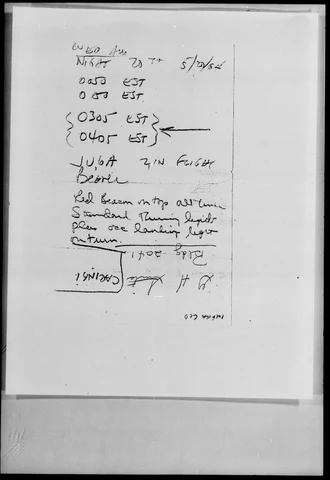 WED AM
NIGHT 20TH 5/20/54
0050 EST
0150 EST
0305 EST
0405 EST
JUGA 2 IN FLIGHT
Beaver
Red Beacon on top all time
Standard Running lights
plus occ landing light
on turn.
Bldg 2041
CARINGI